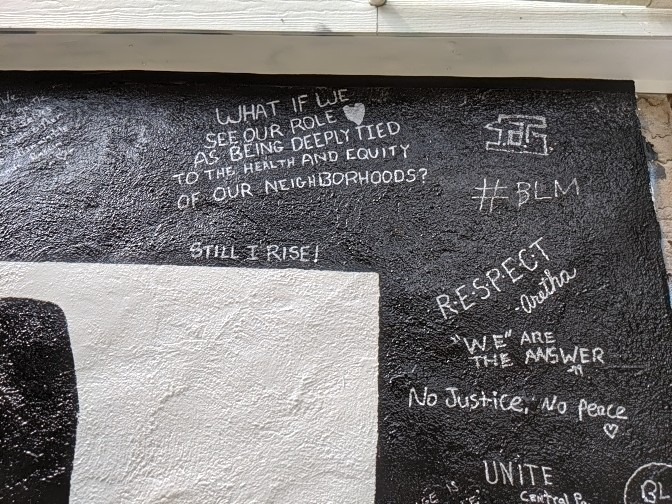 WHAT IF WE
SEE OUR ROLE
AS BEING DEEPLY TIED
TO THE HEALTH AND EQUITY
OF OUR NEIGHBORHOODS?
STILL I RISE!
#BLM
R-E-S-P-E-C-T
-Aretha
"WE" ARE
THE ANSWER
No Justice, No peace
UNITE
CENTRAL